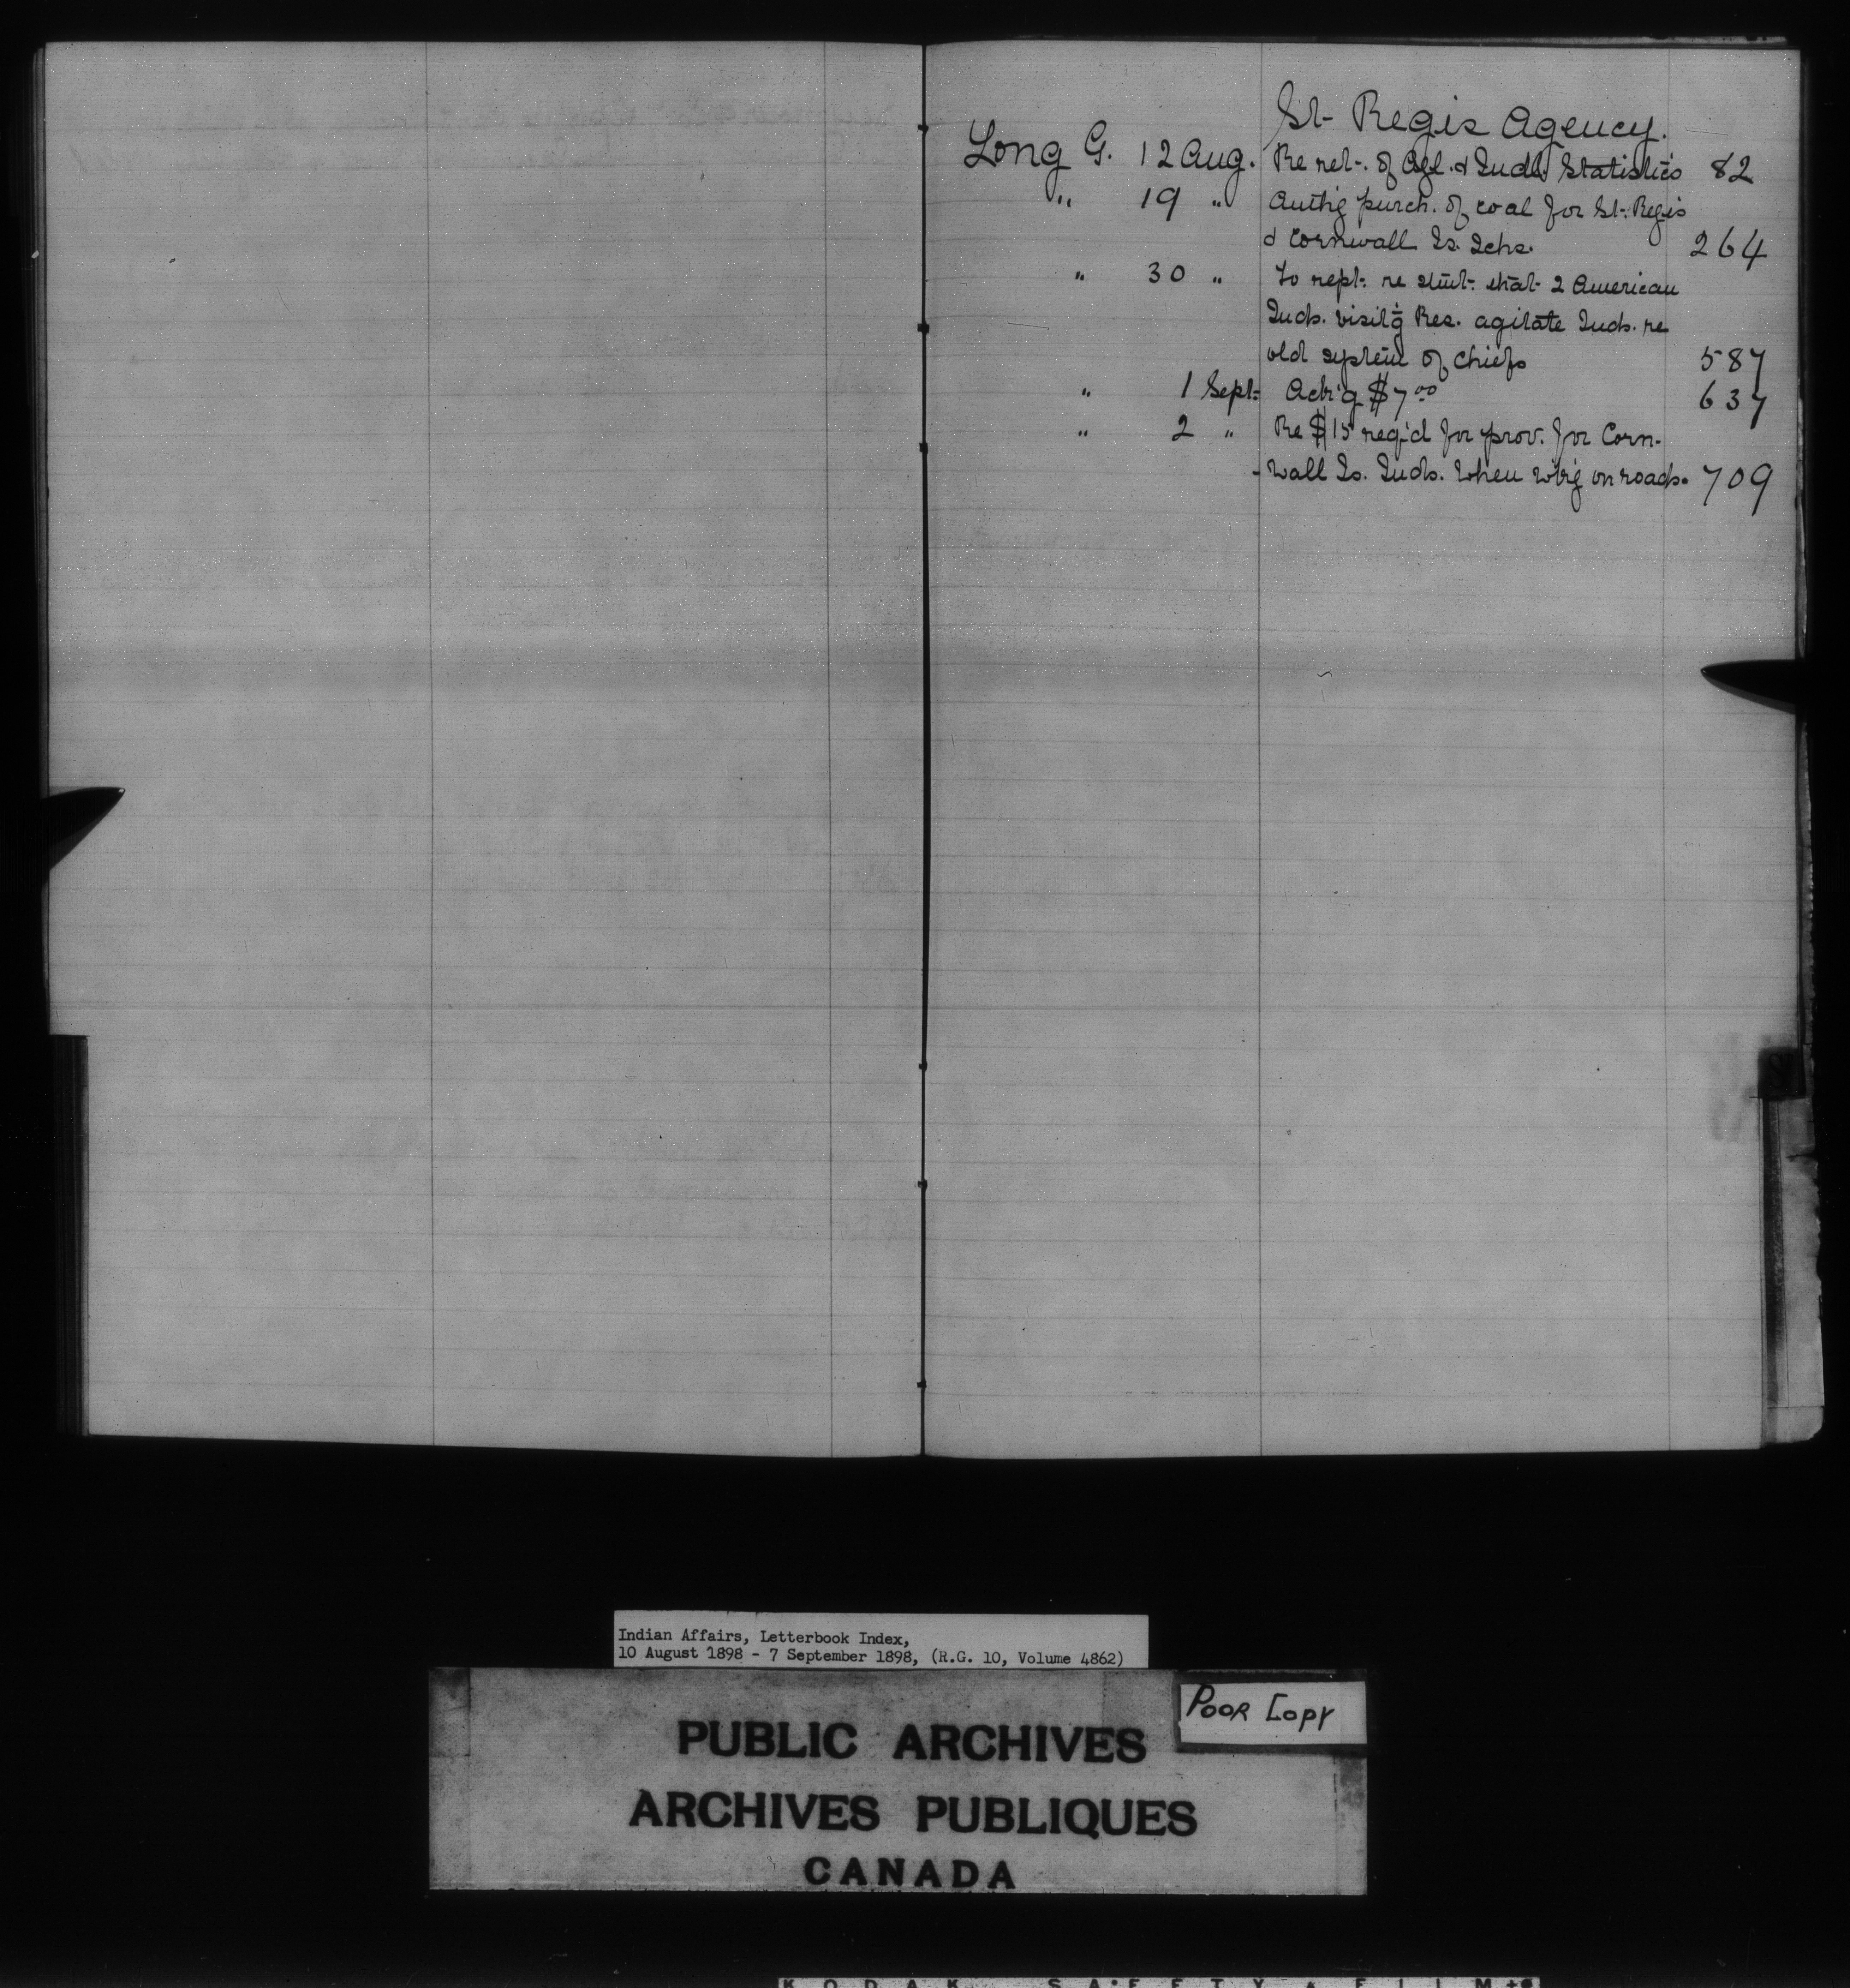 St- Regis Agency.
Long G. 12 Aug. Re ret-. of Agl. & Indl. Statistics 82
" 19 " Auth'g purch. of coal for St-. Regis
& Cornwall Is. Schs. 264
" 30 " To rept-. re stmt-. that 2 American
Inds. visit'g Res. agitate Inds. re
old system of chiefs 587
" 1 Sept- Ack'g $7.00 637
" 2 " Re $15 req'd for prov. for Corn-
-wall Is. Inds. when w'k'g on roads. 709
Indian Affairs, Letterbook Index,
10 August 1898 - 7 September 1898, (R.G. 10, Volume 4862)
POOR COPY
PUBLIC ARCHIVES
ARCHIVES PUBLIQUES
CANADA
KODAK SAFETY FILM